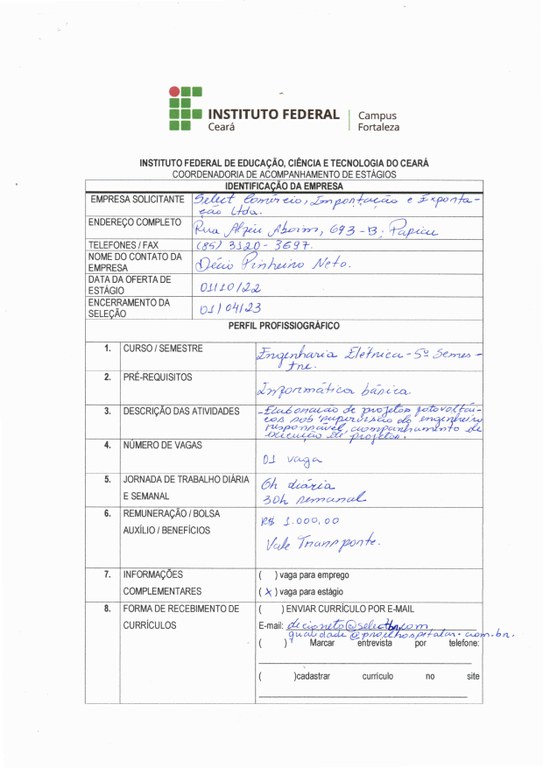 INSTITUTO FEDERAL
Ceará
Campus
Fortaleza
INSTITUTO FEDERAL DE EDUCAÇÃO, CIÊNCIA E TECNOLOGIA DO CEARÁ
COORDENADORIA DE ACOMPANHAMENTO DE ESTÁGIOS
IDENTIFICAÇÃO DA EMPRESA
EMPRESA SOLICITANTE Select Comércio, Importação e Exporta-
ção Ltda.
ENDEREÇO COMPLETO Rua 693-B, Papicu
TELEFONES / FAX (85) 3120-3697.
NOME DO CONTATO DA
EMPRESA Décio Pinheiro Neto.
DATA DA OFERTA DE
ESTÁGIO 01/10/22
ENCERRAMENTO DA
SELEÇÃO 01/04/23
PERFIL PROFISSIOGRÁFICO
1. CURSO / SEMESTRE Engenharia Elétrica - 5º Semes-
tre.
2. PRÉ-REQUISITOS
Informática básica.
3. DESCRIÇÃO DAS ATIVIDADES - Elaboração de projetos fotovoltái-
cos sob supervisão do engenheiro
responsável, acompanhamento de
execução de projetos.
4. NÚMERO DE VAGAS
01 vaga
5. JORNADA DE TRABALHO DIÁRIA 6h diária
E SEMANAL 30h semanal
6. REMUNERAÇÃO / BOLSA R$ 1.000,00
AUXÍLIO / BENEFÍCIOS
Vale Transporte.
7. INFORMAÇÕES ( ) vaga para emprego
COMPLEMENTARES ( x ) vaga para estágio
8. FORMA DE RECEBIMENTO DE ( ) ENVIAR CURRÍCULO POR E-MAIL
CURRÍCULOS E-mail:
( ) Marcar entrevista por telefone:
( )cadastrar currículo no site